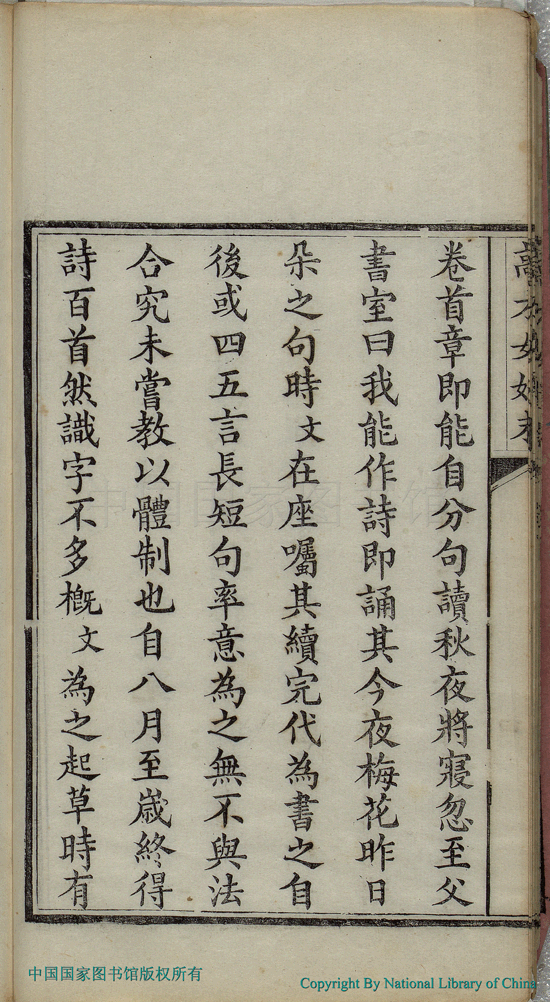 卷首章即能自分句讀秋夜將寢忽至父
書室曰我能作詩即誦其今夜梅花昨日
朵之句時文在座囑其續完代為書之自
後或四五言長短句率意為之無不與法
合究未嘗教以體制也自八月至歲終得
詩百首然識字不多概文為之起草時有
中国国家图书馆版权所有
Copyright By National Library of China